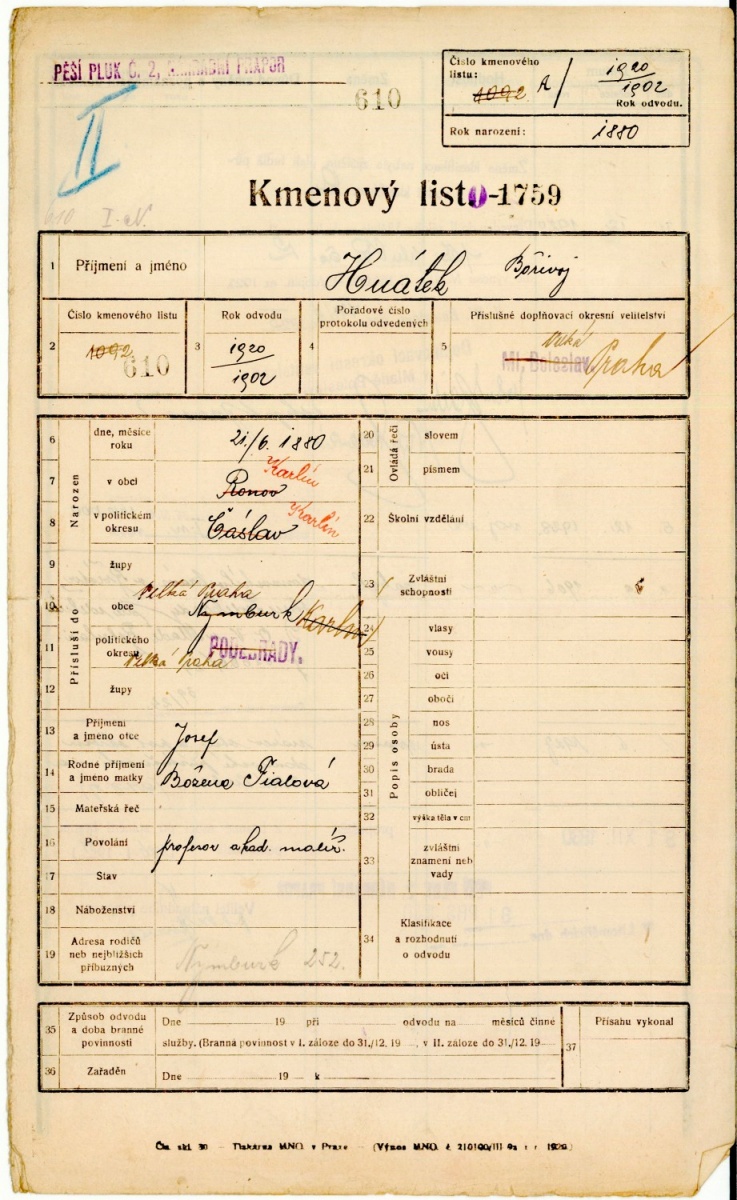 PĚŠÍ PLUK Č. 2, NÁHRADNÍ PRAPOR
610
Číslo kmenového
listu:
1092 A/ 1920
1902
Rok odvodu.
Rok narození: 1880
II
610 I.
Kmenový list 0-1759
1 Příjmení a jméno Hnátek Bořivoj
2 Číslo kmenového listu 1092 610
3 Rok odvodu 1920
1902
4 Pořadové číslo
protokolu odvedených
5 Příslušné doplňovací okresní velitelství
Velká
Ml. Boleslav. Praha
Narozen
6 dne, měsíce
roku 21./6. 1880
7 v obci Ronov Karlín
8 v politickém
okresu Čáslav Karlín
9 župy
Přísluší do
Velká Praha
10 obce Nymburk Karlín
11 politického
okresu Velká Praha PODĚBRADY.
12 župy
13 Příjmení
a jmeno otce Josef
14 Rodné příjmení
a jmeno matky Božena Fialová
15 Mateřská řeč
16 Povolání profesor akad. malíř.
17 Stav
18 Náboženství
19 Adresa rodičů
neb nejbližších
příbuzných Nymburk 252.
Ovládá řeči
20 slovem
21 písmem
22 Školní vzdělání
23 Zvláštní
schopnosti
Popis osoby
24 vlasy
25 vousy
26 oči
27 obočí
28 nos
29 ústa
30 brada
31 obličej
32 výška těla v cm
33 zvláštní
znamení neb
vady
34 Klasifikace
a rozhodnutí
o odvodu
35 Způsob odvodu
a doba branné
povinnosti
Dne 19 při odvodu na měsíců činné
služby. (Branná povinnost v I. záloze do 31./12. 19 , v II. záloze do 31./12. 19
36 Zařaděn Dne 19 k
37 Přísahu vykonal
Čís. skl. 30 — Tiskárna MNO. v Praze — (Výnos MNO. č.